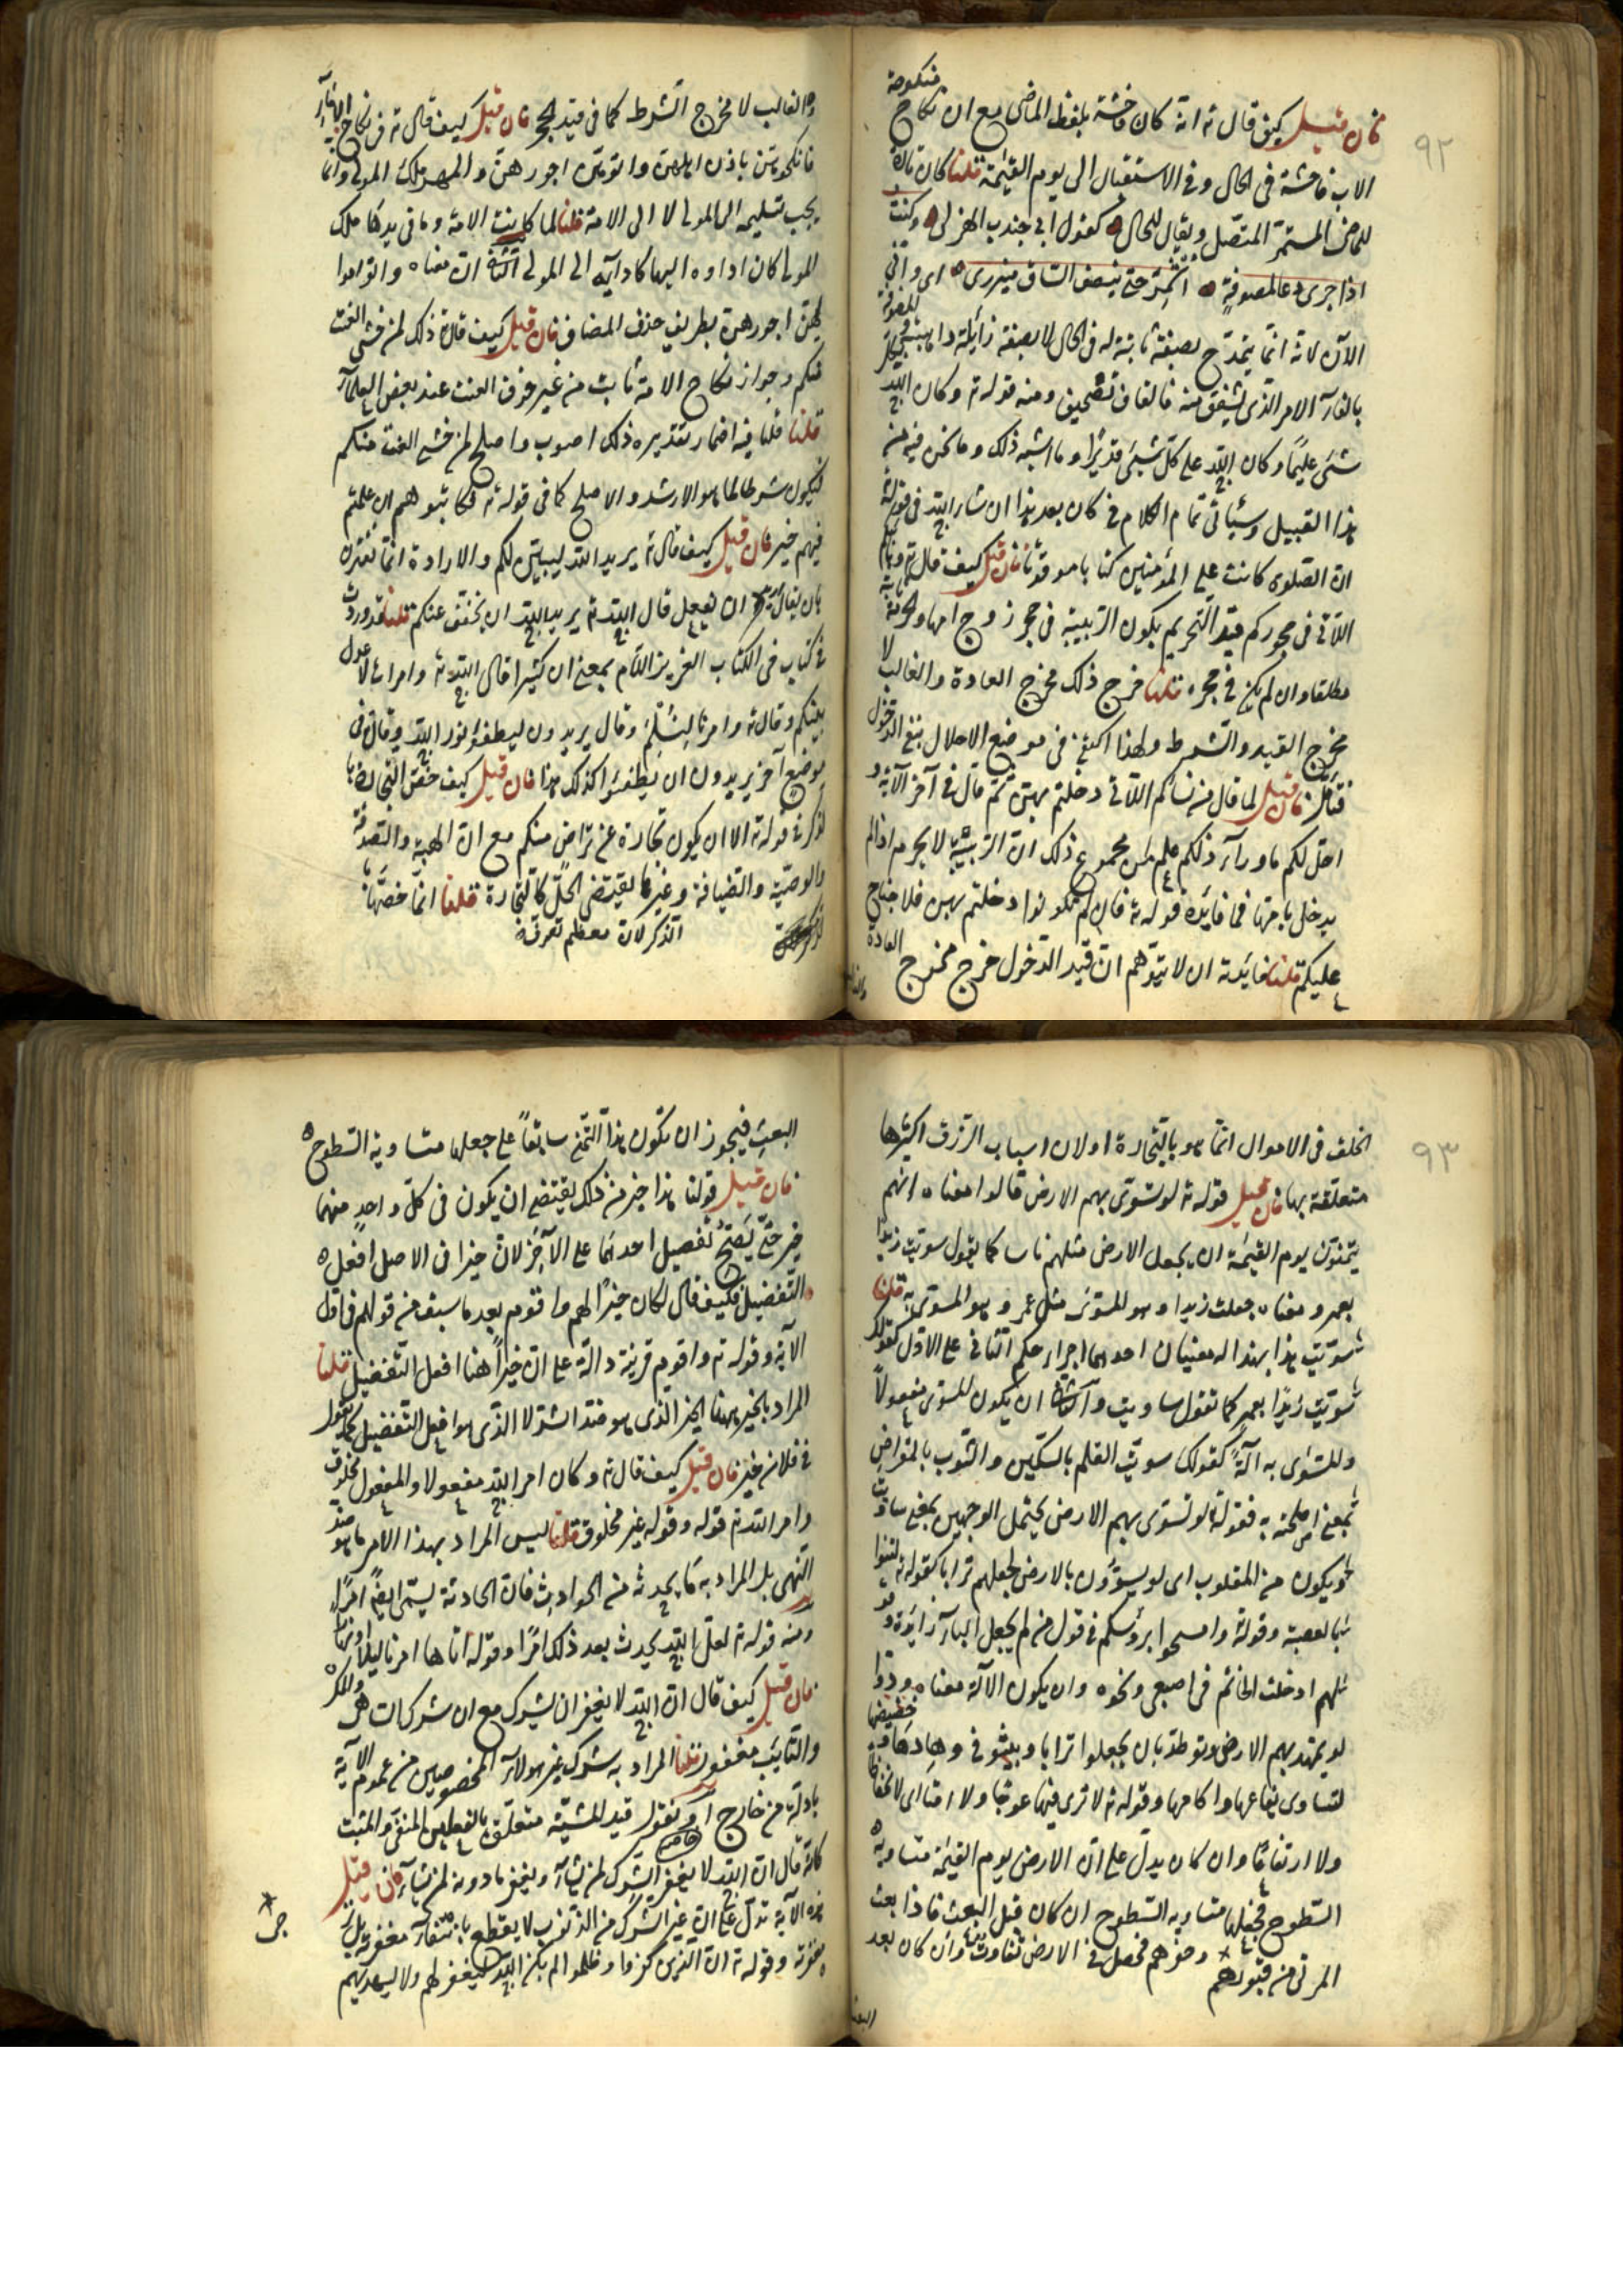 ٩٢
منكوحة
فان قيل كيف قال ته انه كان فاحشة بلفظ الماضى مع ان نكاح
الاب فاحشة فى الحال وفى الاستقبال الى يوم القيمة قلنا كان تارة
للماضى المستمر المتصل ويقال للحال كقول ابى جندب الهزلى وكنت
اذا جرى دعا لمضوفة اشمر حتى ينصف الساق ميزرى اى وانى
الآن لانه انما يتمدح بصفة ثابتة له فى الحال لا بصفة زايلة ذاهبة
بالفاء الامر الذى يشفق منه فالقاف تصحيف ومنه قوله ته وكان الله
شئ عليما وكان الله على كل شيئ قديرا وما اشبه ذلك وما نحن فيه من
هذا القبيل وسيأتى تمام الكلام فى كان بعد هذا ان شاء الله فى قوله ته
ان الصلوة كانت على المؤمنين كتابا موقوتا فان قيل كيف قال ته وربائبكم
اللاتى فى حجوركم قيد التحريم بكون الربيبة فى حجر زوج امها والحرمة ثابتة
مطلقا وان لم يكن فى حجره قلنا خرج ذلك مخرج العادة والغالب لا
مخرج القيد والشرط ولهذا اكتفى فى موضع الاحلال بنفى الدخول
فتأمل فان قيل لما قال من نسائكم اللاتى دخلتم بهن ثم قال فى آخر الآية و
احل لكم ما وراء ذلكم علم من مجموع ذلك ان الربيبة لا يحرم اذا لم
يدخل بامها فما فايدة قوله ته فان لم تكونوا دخلتم بهن فلا جناح
عليكم قلنا فايدته ان لا يتوهم ان قيد الدخول خرج مخرج العادة
والغالب لا مخرج الشرط كما فى قيد الحجر فان قيل كيف قال ته فى نكاح الاماء
فانكحوهن باذن اهلهن واتوهن اجورهن والمهر ملك المولى وانما
يجب تسليمه الى المولى لا الى الامة قلنا لما كانت الامة وما فى يدها ملك
المولى كان اداؤه اليها كادائه الى المولى الثانى ان معناه واتوا مواليهن
لهن اجورهن بطريق حذف المضاف فان قيل كيف قال ته ذلك لمن خشى العنت
منكم وجواز نكاح الامة ثابت من غير خوف العنت عند بعض العلماء
قلنا فيه اضمار تقديره ذلك اصوب واصلح لمن خشى العنت منكم
فيكون شرطا لما هو الارشد والاصلح كما فى قوله ته فكاتبوهم ان علمتم
فيهم خيرا فان قيل كيف قال ته يريد الله ليبين لكم والارادة انما تقترن
بان يقال يريد ان يفعل قال الله ته يريد الله ان يخفف عنكم قلنا قد وردت
فى كتاب فى الكتاب العزيز اللام بمعنى ان كثيرا قال الله ته وامرت لاعدل
بينكم وقال ته وامرنا لنسلم وقال يريدون ليطفؤا نور الله وقال فى
موضع آخر يريدون ان يطفئوا كذلك هذا فان قيل كيف خص التجارة
بالذكر فى قوله ته الا ان يكون تجارة عن تراض منكم مع ان الهبة والصدقة
والوصية والضيافة وغيرها يقتضى الحل كالتجارة قلنا انما خصها
بالذكر لان معظم تصرف
٩٣
الخلق فى الاموال انما هو بالتجارة اولان اسباب الرزق اكثرها
متعلقة بها فان قيل قوله ته لو تسوى بهم الارض قالوا معناه انهم
يتمنون يوم القيمة ان يجعل الارض مثلهم ناسا كما يقول سويت زيدا
بعمرو معناه جعلت زيدا وهو المسوى مثل عمرو وهو المسوى به قلنا
سويت هذا بهذا له معنيان احدهما اجراء حكم الثانى على الاول كقولك
سويت زيدا بعمرو كما تقول ساويت والثانى ان يكون المسوى مفعولا
والمسوى به آلة كقولك سويت القلم بالسكين والثوب بالمقراض
بمعنى اصلحته به فقوله لو تسوى بهم الارض يحتمل الوجهين بمعنى ساويت
ويكون من المقلوب اى لو يسوون بالارض بجعلهم ترابا كقوله ته لتنوأ
بالعصبة وقوله وامسحوا برؤسكم فى قول من لم يجعل الباء زايدة وقو
لهم ادخلت الخاتم فى اصبعى ونحوه وان يكون الآلة معناه ودوا
لو يمهد بهم الارض وتوطد بان يجعلوا ترابا ويبثوا فى وهادها وحضيضها
لتساوى بقاعها واكامها وقوله ته لا ترى فيها عوجا ولا امتا اى لا انخفاضا
ولا ارتفاعا وان كان يدل على ان الارض يوم القيمة متساوية
السطوح فجعلها متساوية السطوح ان كان قبل البعث فاذا بعث
الموتى من قبورهم وحفرهم فحصل فى الارض تفاوت وان كان بعد
البعث فيجوز ان تكون هذا التمنى سابقا على جعلها متساوية السطوح
فان قيل قولنا هذا خير من ذلك يقتضى ان يكون فى كل واحد منهما
خير حتى يصح تفضيل احدهما على الآخر لان خيرا فى الاصل افعل
التفضيل فكيف قال لكان خيرا لهم واقوم بعد ما سبق من قولهم فى اول
الآية وقوله ته واقوم قرينة دالة على ان خيرا هنا افعل التفضيل قلنا
المراد بالخير ههنا الخير الذى هو ضد الشر لا الذى هو افعل التفضيل كما تقول
فى فلان خير فان قيل كيف قال ته وكان امر الله مفعولا والمفعول مخلوق
وامر الله ته قوله وقوله غير مخلوق قلنا ليس المراد بهذا الامر ما هو ضد
النهى بل المراد به ما يحدثه من الحوادث فان الحادثة يسمى ايضا امرا
ومنه قوله ته لعل الله يحدث بعد ذلك امرا وقوله اتاها امرنا ليلا او نهارا
فان قيل كيف قال ان الله لا يغفر ان يشرك مع ان شرك الساهى والمكره
والتايب مغفور قلنا المراد به شرك غير هولاء المخصوصين من عموم الآية
بادلة من خارج او نقول قيد المشية متعلق بالفعلين المنفى والمثبت
كانه قال ان الله لا يغفر الشرك لمن يشاء ويغفر ما دونه لمن يشاء فان قيل
هذه الآية تدل على ان غير الشرك من الذنوب لا يقطع بانتفاء مغفرته بل
مغفرته وقوله ته ان الذين كفروا وظلموا لم يكن الله ليغفر لهم ولا ليهديهم